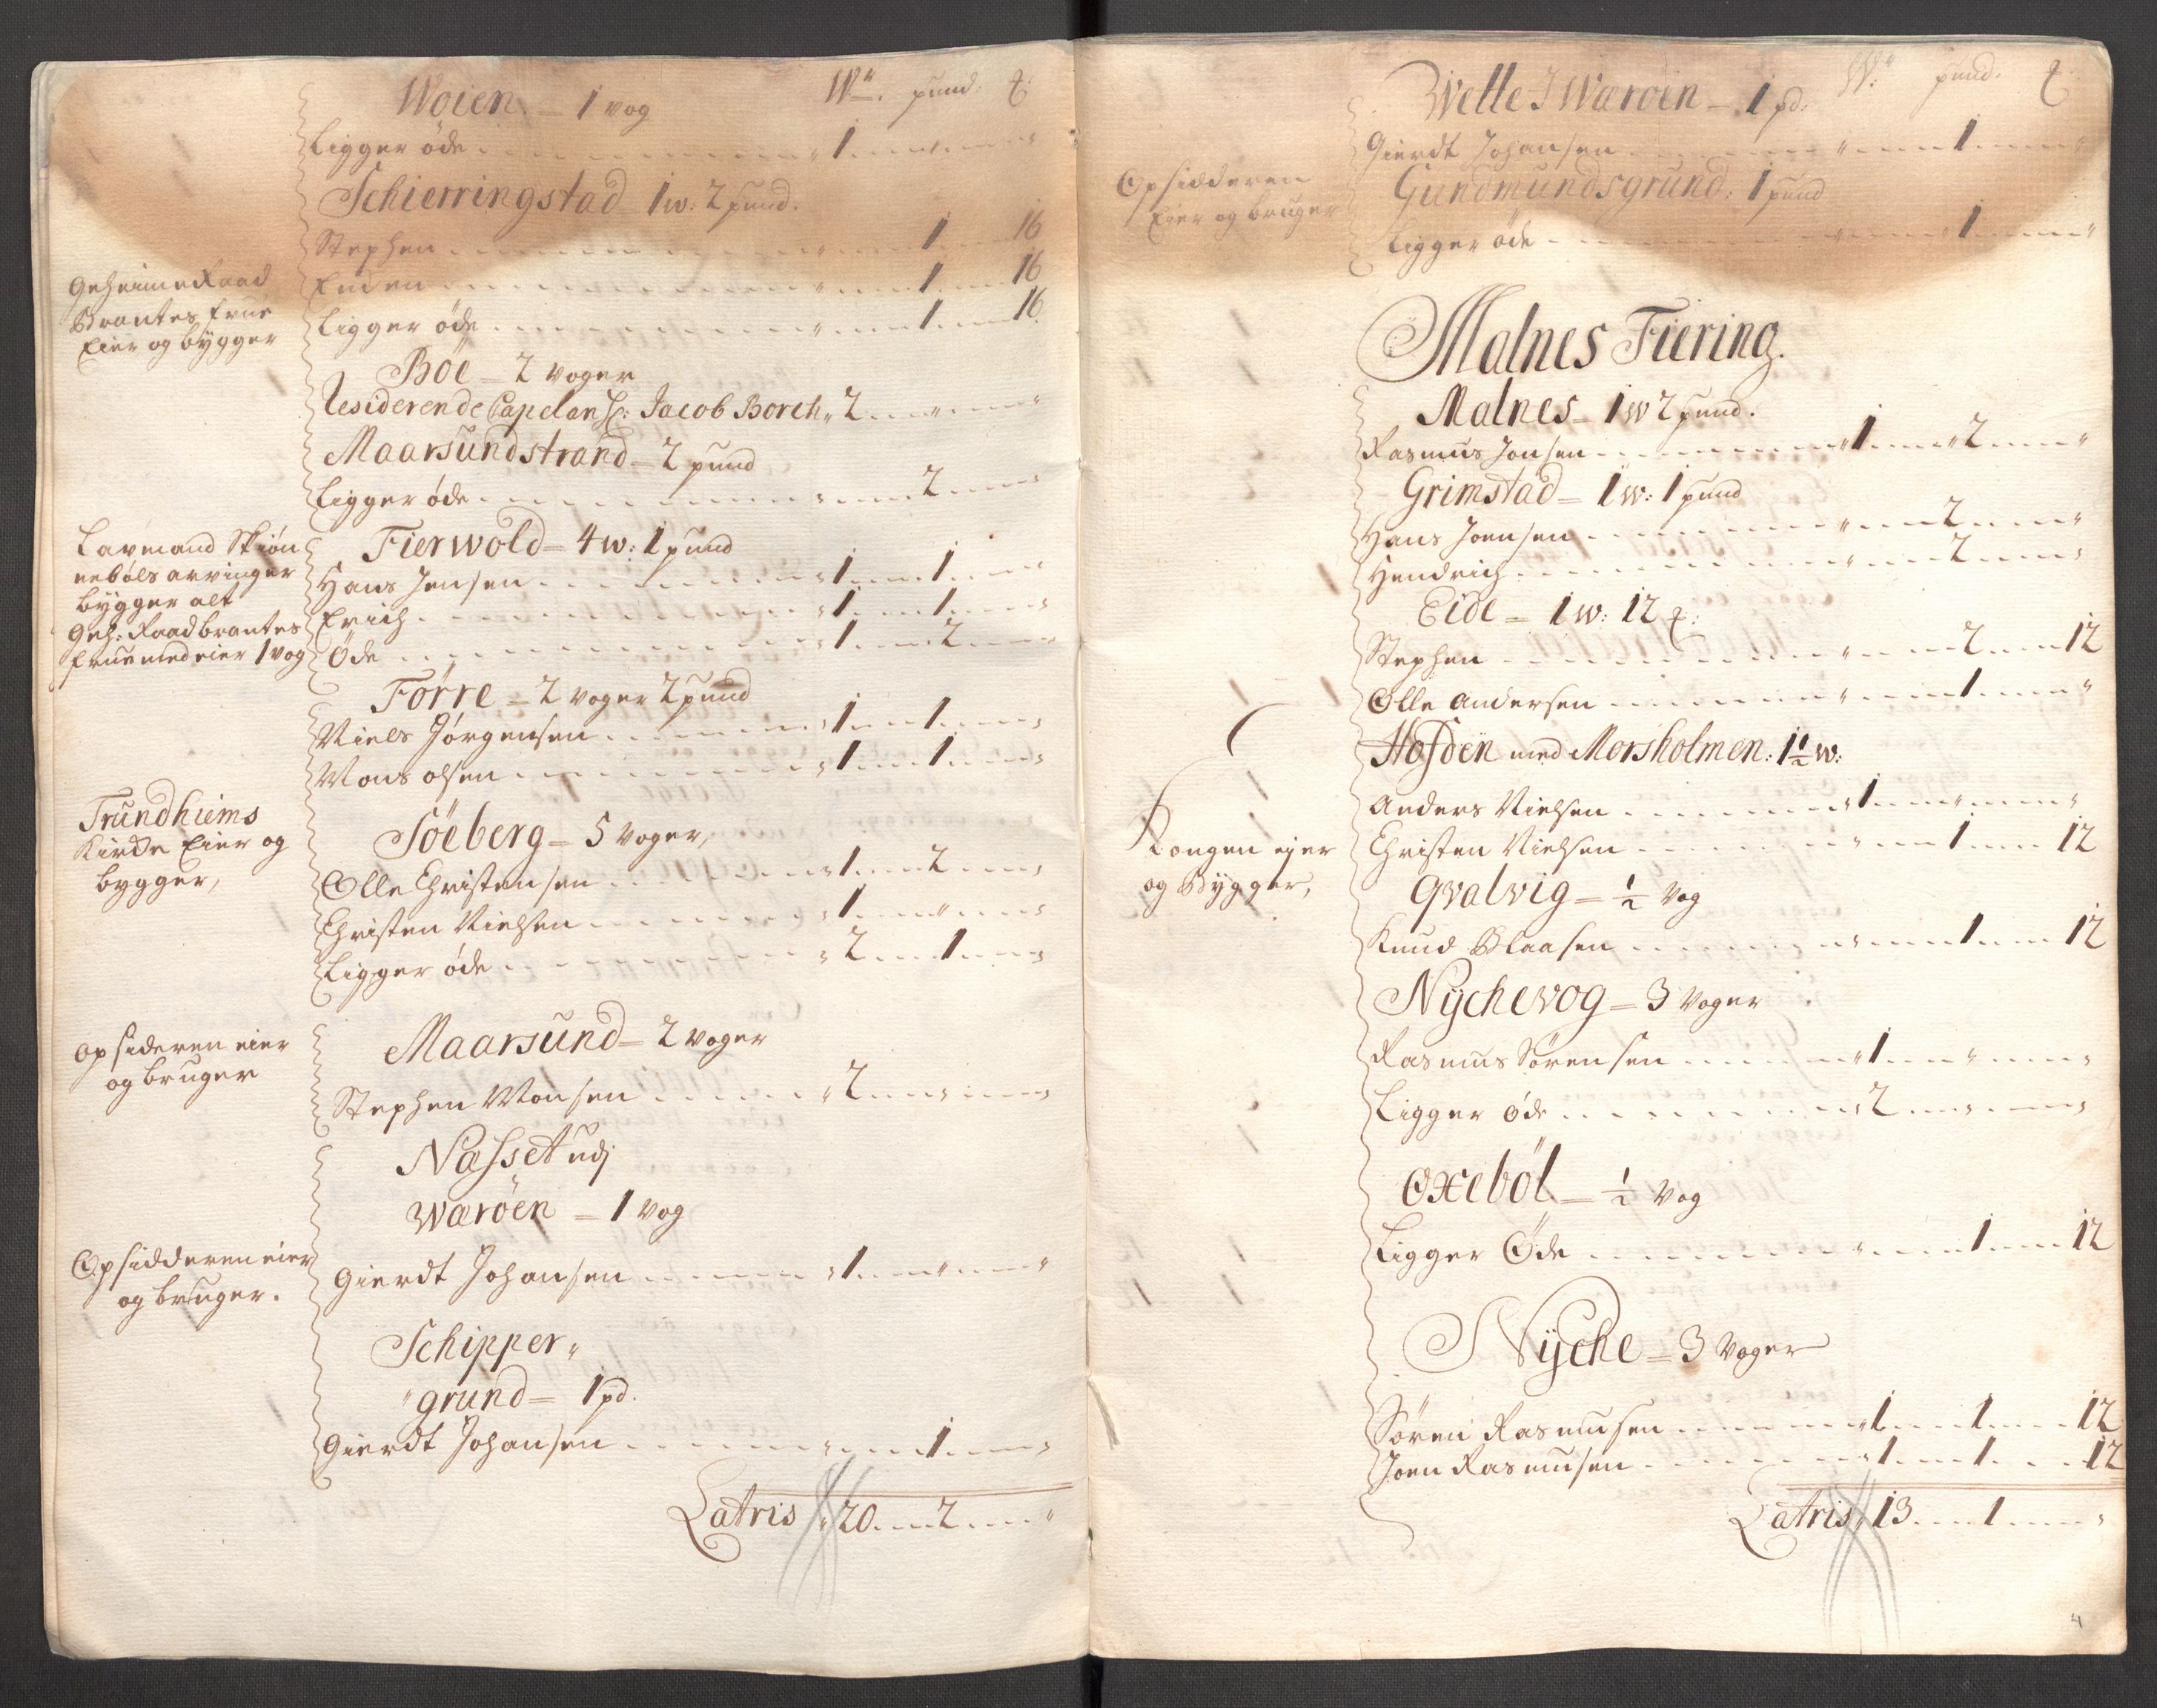 Woien = 1 vog Wr. pund. ℔
Ligger öde " 1 " "
Schierringstad 1 w: 2 pund.
Stephen " 1 16
Enden " 1 16
Geheime Raad
Brantes frue
Eier og bygger
Ligger öde " 1 16
Böe = 2 voger
Residerende Capelan Hr: Jacob Borch " 2 " "
Maarsundstrand = 2 pund
Ligger öde " 2 "
Lavmand Skiön
nebóls arvinger
bygger alt
Geh: Raad brantes
frue med eier 1 vog
Fierwold = 4 w: 1 pund
Hans Jensen " 1 1 "
Erich " 1 1 "
Öde " 1 2 "
Förre = 2 voger 2 pund
Niels Jörgensen " 1 1 "
Mons olsen " 1 1 "
Trundhiems
Kircke Eier og
bygger,
Söeberg = 5 voger,
Olle Christensen " 1 2 "
Christen Nielsen " 1 " "
Ligger öde " 2 1 "
opsideren eier
og bruger
Maarsund = 2 voger
Stephen Monsen " 2 " "
Næsset udj
Waröen = 1 vog
Opsidderen eier
og bruger.
Gierdt Johansen " 1 " "
Schipper "
" grund = 1 pd.
Gierdt Johansen " 1 "
Latris " 20 2 "
Welle J Waröen = 1 pd: W: pund. ℔
Gierdt Johansen " 1 "
Opsidderen
Eier og bruger
Gundmundsgrund: 1 pund
Ligger öde " 1 "
Malnes Fiering.
Malnes = 1 w 2 pund.
Rasmus Jonsen " 1 " 2 "
Grimstad = 1 w: 1 pund
Hans Joensen " 2 "
Hendrich " 2 "
Eide = 1 w: 12 ℔:
Stephen " 2 12
Olle Andersen " 1 "
Hofden med Mersholmen: 1 1/2 w:
Anders Nielsen " 1 " "
Kongen ejer
og Bygger,
Christen Nielsen " 1 12
Qvalvig = 1/2 Vog
Knud Olaasen " 1 12
Nychevog = 3 Voger
Rasmus Sörensen " 1 " "
Ligger öde " 2 " "
Oxeböl = 1/2 Vog
Ligger Öde " 1 12
Nyche = 3 Voger
Sören Rasmusen " 1 1 12
Joen Rasmusen " 1 1 12
Latris " 13 1 "
4